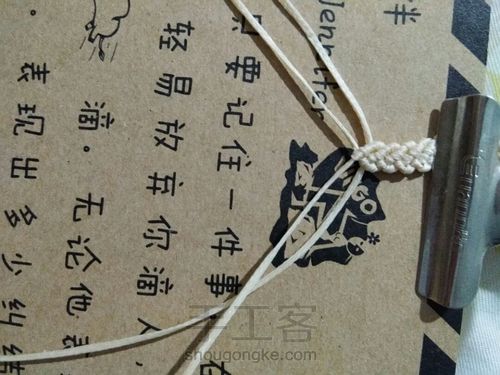 Jennifer
只要记住一件事
轻易放弃你滴人
滴。无论他
表现出多少纠结
GO
手工客
shougongke.com